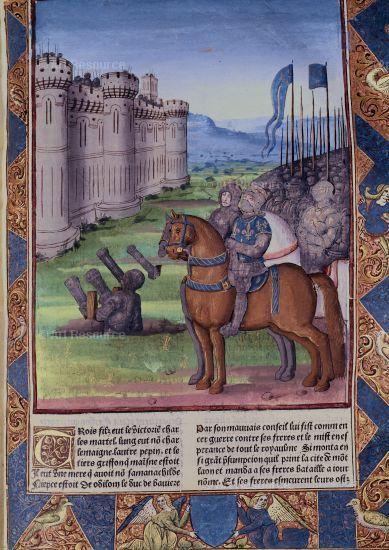 Trois filz eut le victorie char
les martel. lung eut nō char
lemaigne. lautre pepin, et le
tiers griffond maisne estoit
Il eut vne mere q auoit nō samanachilde
Niepce estoit de odilom le duc de bauiere
Par son mauuais conseil lui fist comm en
cer guerre contre ses freres et le mist en es
perance de tout le royaulme Si monta en
si grāt presumpcion quil print la cite de mōt
lauon et manda a ses freres bataille a iour
nōme. Et ses freres esmeurent leurs ost